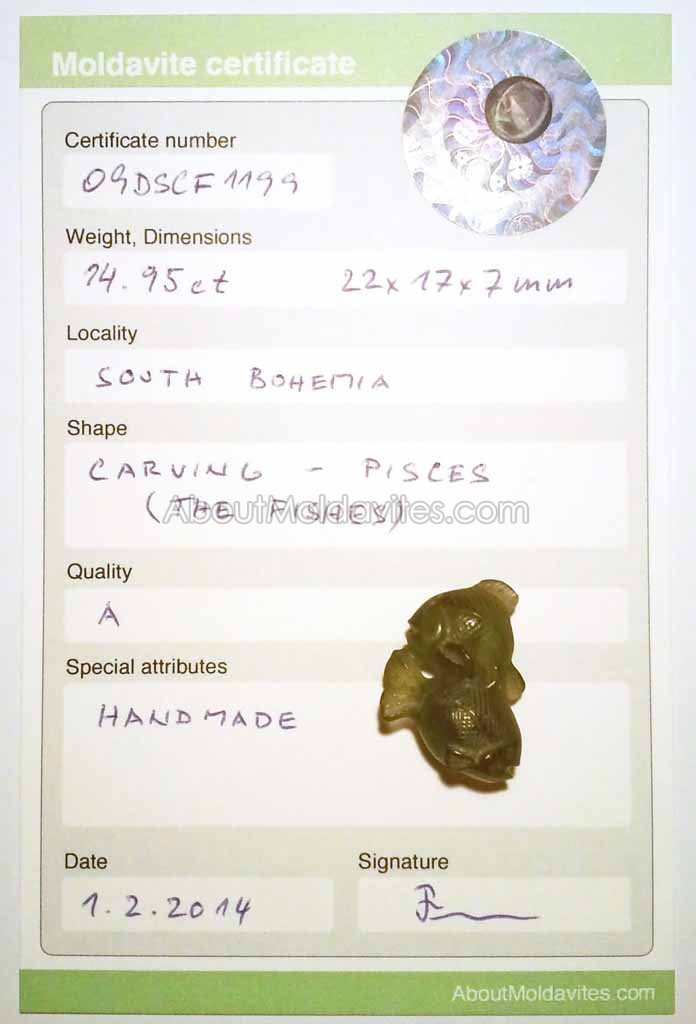 Moldavite certificate
Certificate number
09DSCF1199
Weight, Dimensions
14.95ct 22x17x7mm
Locality
SOUTH BOHEMIA
Shape
CARVING - PISCES
(THE FISHES)
AboutMoldavites.com
Quality
A
Special attributes
HANDMADE
Date Signature
1.2.2014
AboutMoldavites.com